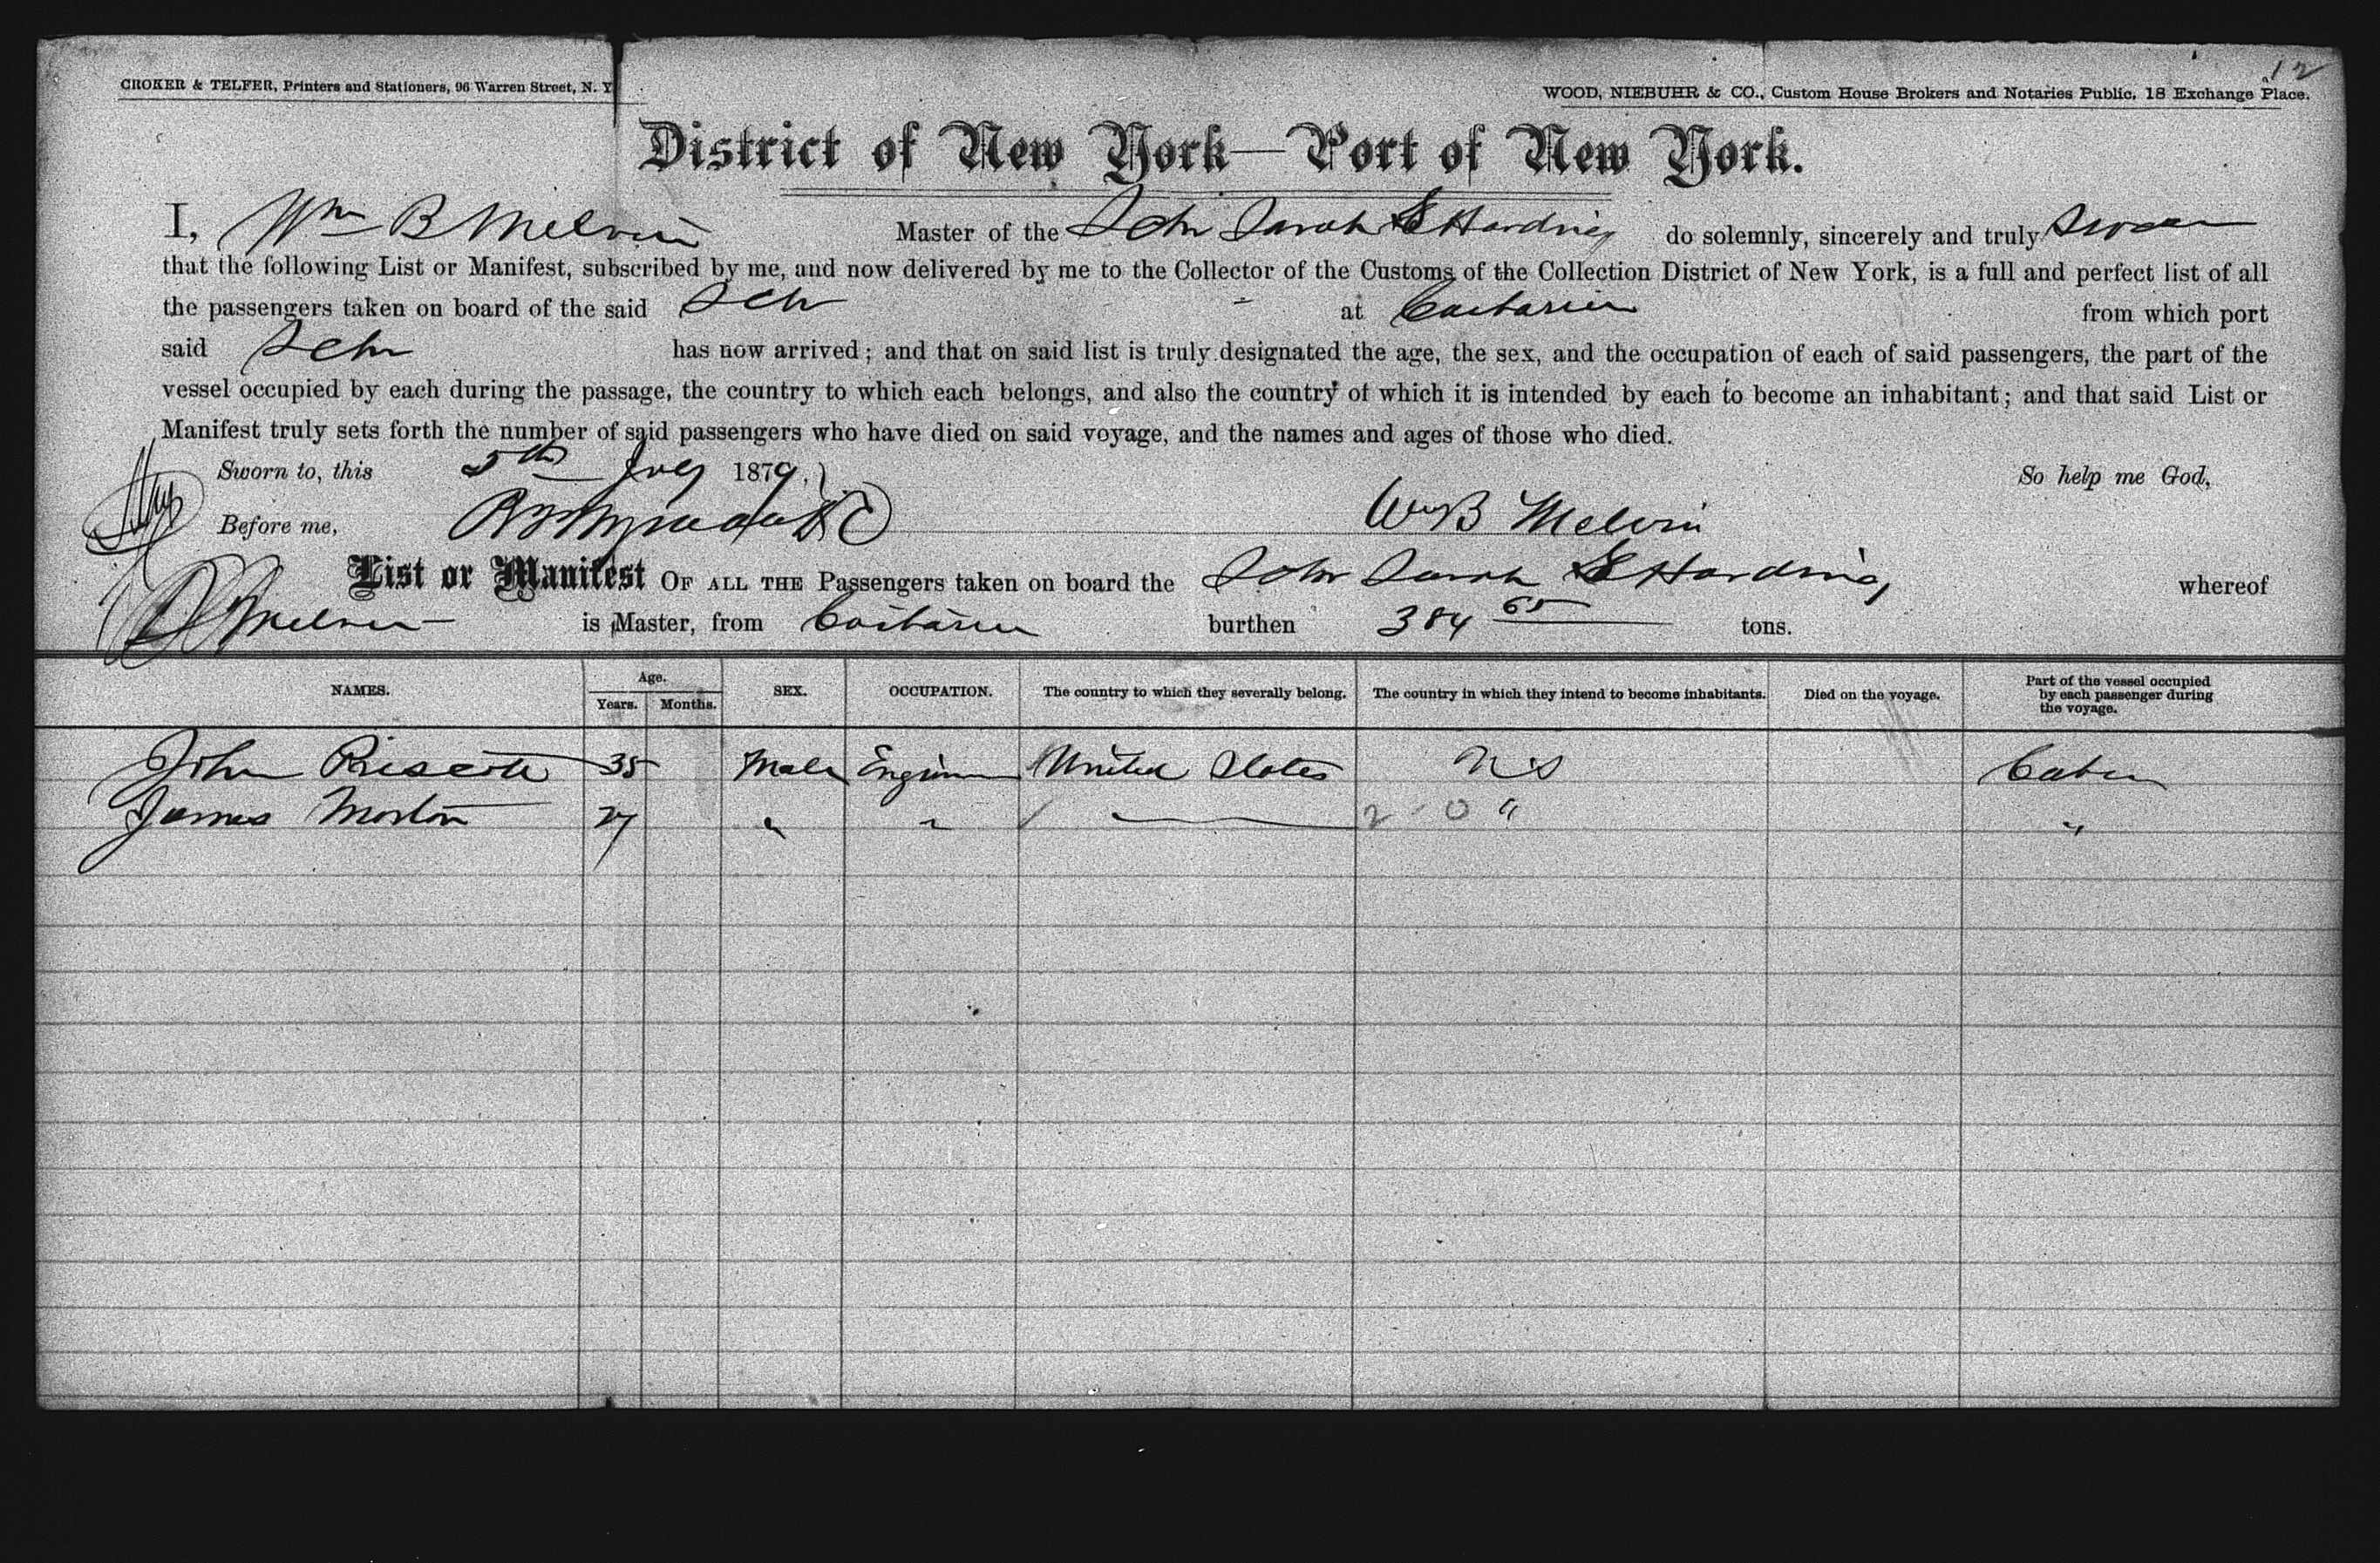 12
CROKER & TELFER, Printers and Stationers, 96 Warren Street, N. Y.
WOOD, NIEBUHR & CO., Custom House Brokers and Notaries Public, 18 Exchange Place.
District of New York—Port of New York.
I, Wm B Melvin Master of the Schr Sarah E Harding do solemnly, sincerely and truly swear
that the following List or Manifest, subscribed by me, and now delivered by me to the Collector of the Customs of the Collection District of New York, is a full and perfect list of all
the passengers taken on board of the said Schr at Caibarien from which port
said Schr has now arrived; and that on said list is truly designated the age, the sex, and the occupation of each of said passengers, the part of the
vessel occupied by each during the passage, the country to which each belongs, and also the country of which it is intended by each to become an inhabitant; and that said List or
Manifest truly sets forth the number of said passengers who have died on said voyage, and the names and ages of those who died.
Sworn to, this 5th July 1879. So help me God,
Before me, Wm B Melvin
List or Manifest OF ALL THE Passengers taken on board the Schr Sarah E Harding whereof
Melvin is Master, from Caibarien burthen 384 65 tons.
NAMES. Age. Years. Months. SEX. OCCUPATION. The country to which they severally belong. The country in which they intend to become inhabitants. Died on the voyage. Part of the vessel occupied by each passenger during the voyage.
John 35 Male Engineer United States U S Cabin
James Morton 27 " " 2 0 " "